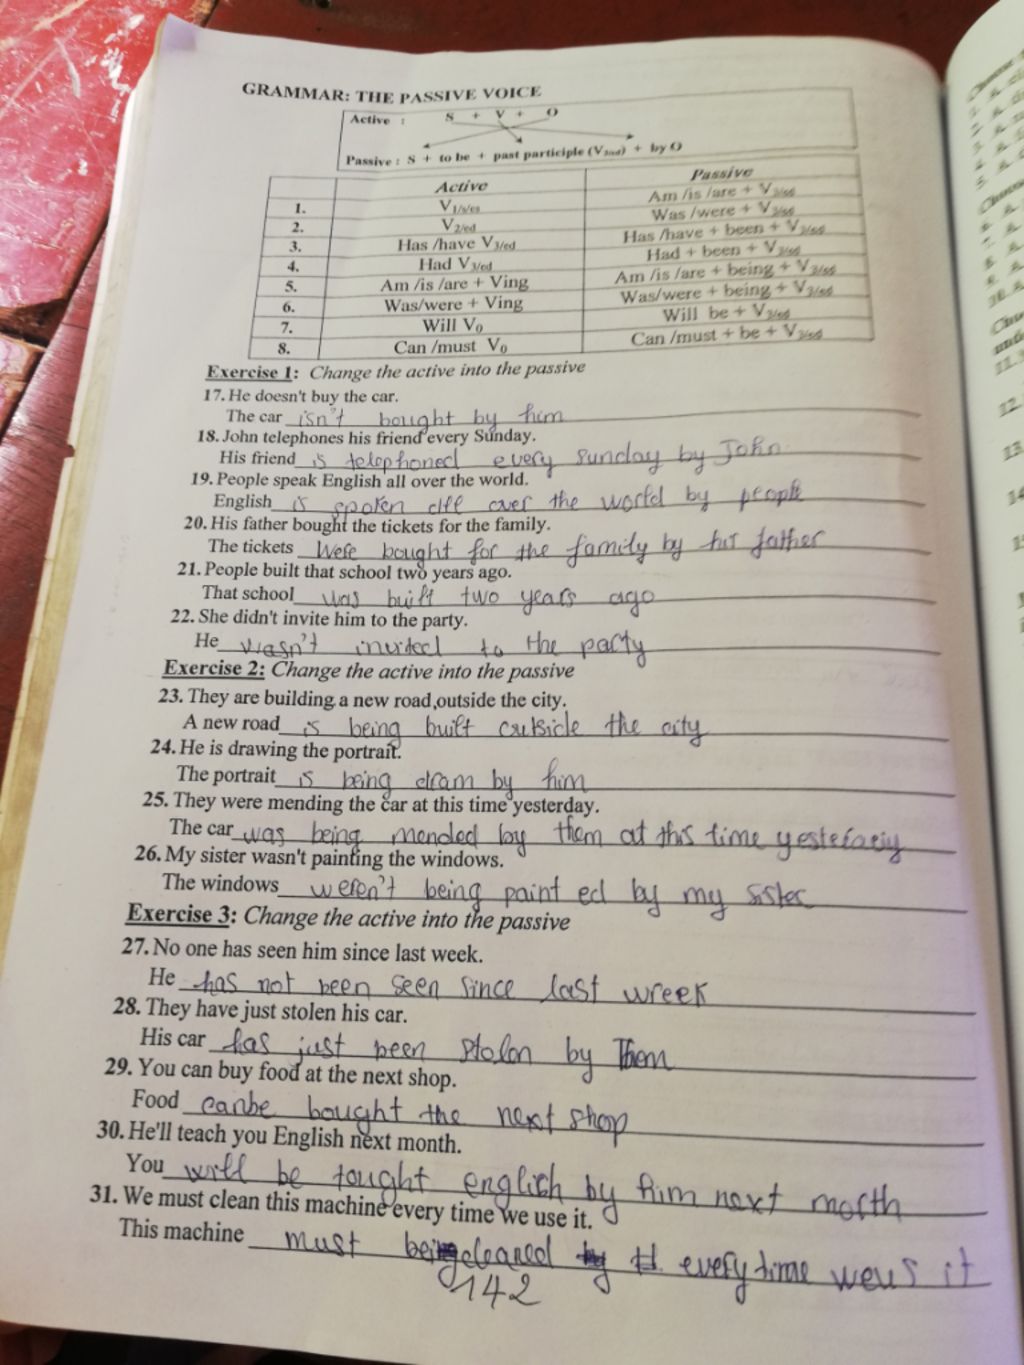 GRAMMAR: THE PASSIVE VOICE
Active : S + V + O
Passive : S + to be + past participle (V3/ed) + by O
Active Passive
1. V1/s/es Am /is /are + V3/ed
2. V2/ed Was /were + V3/ed
3. Has /have V3/ed Has /have + been + V3/ed
4. Had V3/ed Had + been + V3/ed
5. Am /is /are + Ving Am /is /are + being + V3/ed
6. Was/were + Ving Was/were + being + V3/ed
7. Will V0 Will be + V3/ed
8. Can /must V0 Can /must + be + V3/ed
Exercise 1: Change the active into the passive
17. He doesn't buy the car.
The car isn't bought by him
18. John telephones his friend every Sunday.
His friend is telephoned every Sunday by John
19. People speak English all over the world.
English is spoken all over the world by people
20. His father bought the tickets for the family.
The tickets Were bought for the family by his father
21. People built that school two years ago.
That school was built two years ago
22. She didn't invite him to the party.
He wasn't invited to the party
Exercise 2: Change the active into the passive
23. They are building a new road outside the city.
A new road is being built outside the city
24. He is drawing the portrait.
The portrait is being dram by him
25. They were mending the car at this time yesterday.
The car was being mended by them at this time
26. My sister wasn't painting the windows.
The windows weren't being paint ed by my sister
Exercise 3: Change the active into the passive
27. No one has seen him since last week.
He has not been seen since last wreek
28. They have just stolen his car.
His car has just been stolen by Them
29. You can buy food at the next shop.
Food canbe bought the next shop
30. He'll teach you English next month.
You will be tought english by him next month
31. We must clean this machine every time we use it.
This machine must be cleaned every time weus it
142